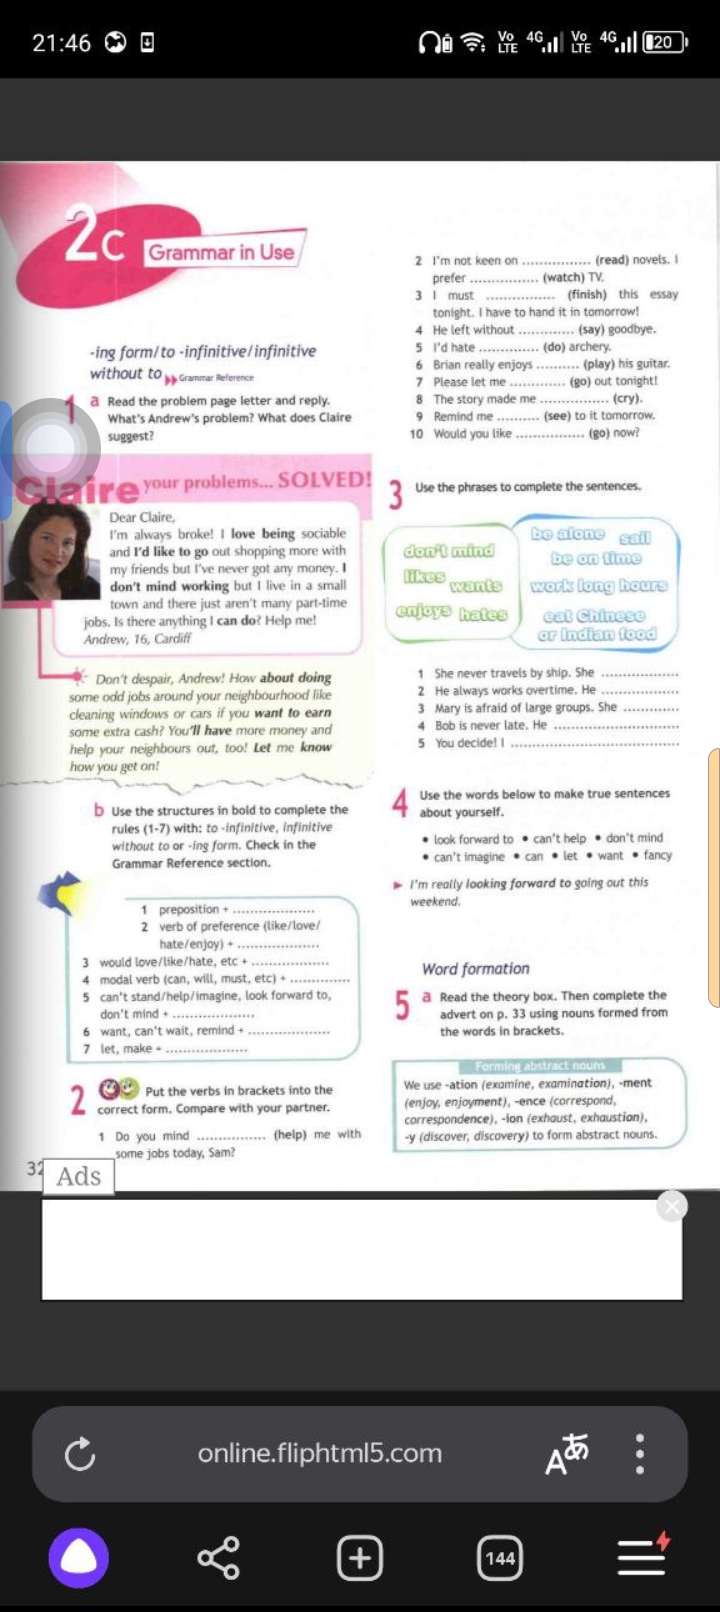 21:46
Vo LTE 4G Vo LTE 4G 20
2c Grammar in Use
-ing form/to -infinitive/infinitive
without to Grammar Reference
1 a Read the problem page letter and reply.
What's Andrew's problem? What does Claire
suggest?
Claire your problems... SOLVED!
Dear Claire,
I'm always broke! I love being sociable
and I'd like to go out shopping more with
my friends but I've never got any money. I
don't mind working but I live in a small
town and there just aren't many part-time
jobs. Is there anything I can do? Help me!
Andrew, 16, Cardiff
Don't despair, Andrew! How about doing
some odd jobs around your neighbourhood like
cleaning windows or cars if you want to earn
some extra cash? You'll have more money and
help your neighbours out, too! Let me know
how you get on!
b Use the structures in bold to complete the
rules (1-7) with: to -infinitive, infinitive
without to or -ing form. Check in the
Grammar Reference section.
1 preposition + ....................
2 verb of preference (like/love/
hate/enjoy) + ....................
3 would love/like/hate, etc + ...................
4 modal verb (can, will, must, etc) + ...............
5 can't stand/help/imagine, look forward to,
don't mind + ....................
6 want, can't wait, remind + ....................
7 let, make + ....................
2 Put the verbs in brackets into the
correct form. Compare with your partner.
1 Do you mind ................ (help) me with
some jobs today, Sam?
32
2 I'm not keen on ................ (read) novels. I
prefer ................ (watch) TV.
3 I must ................ (finish) this essay
tonight. I have to hand it in tomorrow!
4 He left without ............. (say) goodbye.
5 I'd hate .............. (do) archery.
6 Brian really enjoys .......... (play) his guitar.
7 Please let me ............. (go) out tonight!
8 The story made me ................ (cry).
9 Remind me .......... (see) to it tomorrow.
10 Would you like ................ (go) now?
3 Use the phrases to complete the sentences.
don't mind
likes wants
enjoys hates
be alone sail
be on time
work long hours
eat Chinese
or Indian food
1 She never travels by ship. She ..................
2 He always works overtime. He ..................
3 Mary is afraid of large groups. She .............
4 Bob is never late. He .............................
5 You decide! I .......................................
4 Use the words below to make true sentences
about yourself.
• look forward to • can't help • don't mind
• can't imagine • can • let • want • fancy
► I'm really looking forward to going out this
weekend.
Word formation
5 a Read the theory box. Then complete the
advert on p. 33 using nouns formed from
the words in brackets.
Forming abstract nouns
We use -ation (examine, examination), -ment
(enjoy, enjoyment), -ence (correspond,
correspondence), -ion (exhaust, exhaustion),
-y (discover, discovery) to form abstract nouns.
Ads
online.fliphtml5.com
Aあ
144